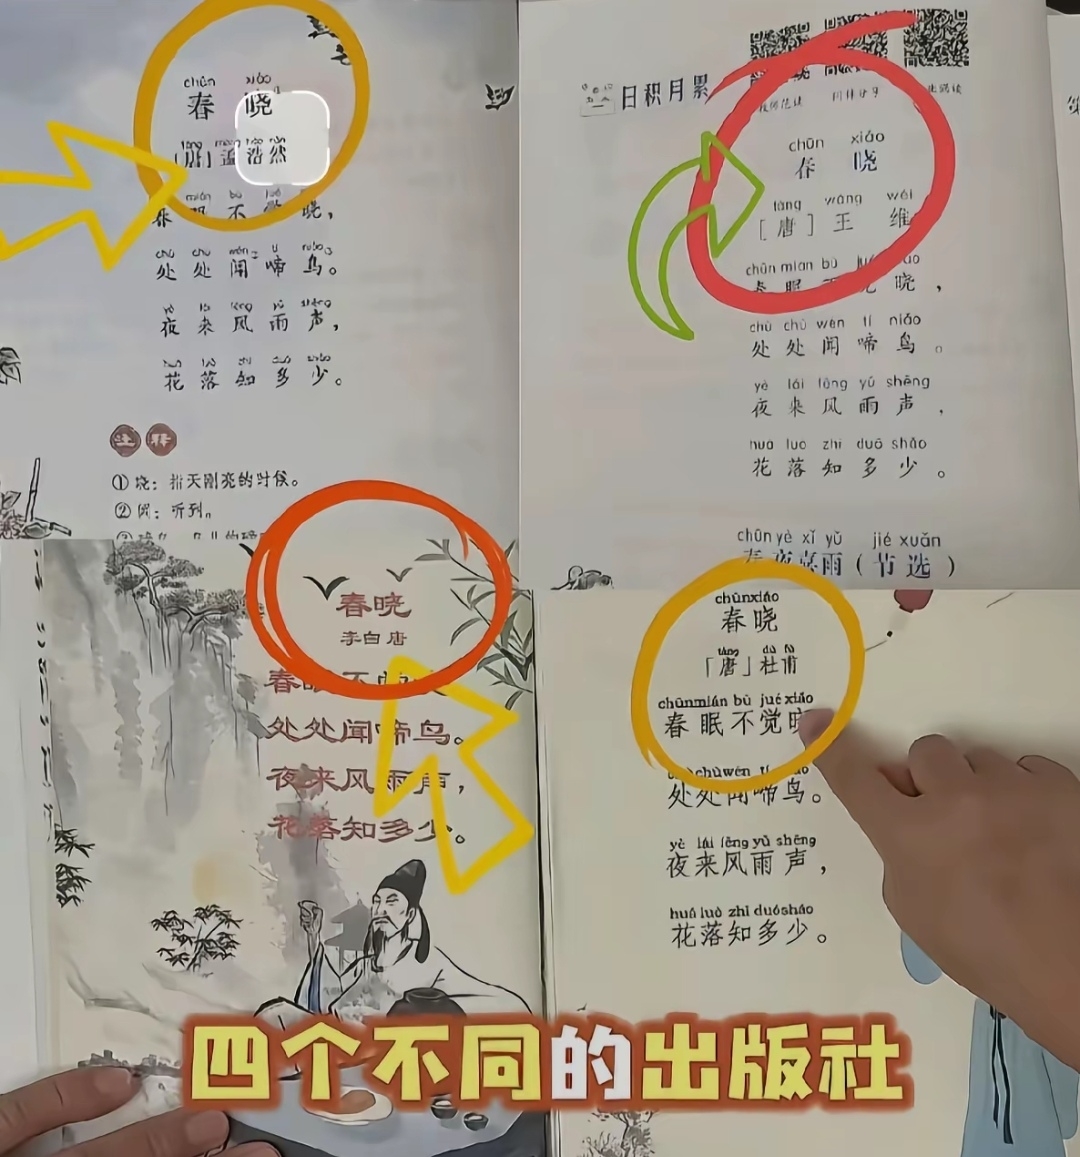 chūn xiǎo
春 晓
[唐] 孟浩然
春 眠 不 觉 晓，
处 处 闻 啼 鸟。
夜 来 风 雨 声，
花 落 知 多 少。
注 释
① 晓：指天刚亮的时候。
② 闻：听到。
日积月累
chūn xiǎo
春 晓
táng wáng wéi
[唐] 王 维
chūn mián bù
春 眠 晓，
chù chù wén tí niǎo
处 处 闻 啼 鸟 。
yè lái fēng yǔ shēng
夜 来 风 雨 声 ，
huā luò zhī duō shǎo
花 落 知 多 少 。
chūn yè xǐ yǔ jié xuǎn
春夜喜雨（节 选）
春晓
李白 唐
春眠不
处处闻啼鸟。
夜来风雨声，
花落知多少。
chūnxiǎo
春晓
táng dù fǔ
「唐」杜甫
chūnmián bù jué xiǎo
春 眠 不 觉 晓
处处闻啼鸟。
yè lái fēng yǔ shēng
夜来风雨声，
huā luò zhī duōshǎo
花落知多少。
四个不同的出版社